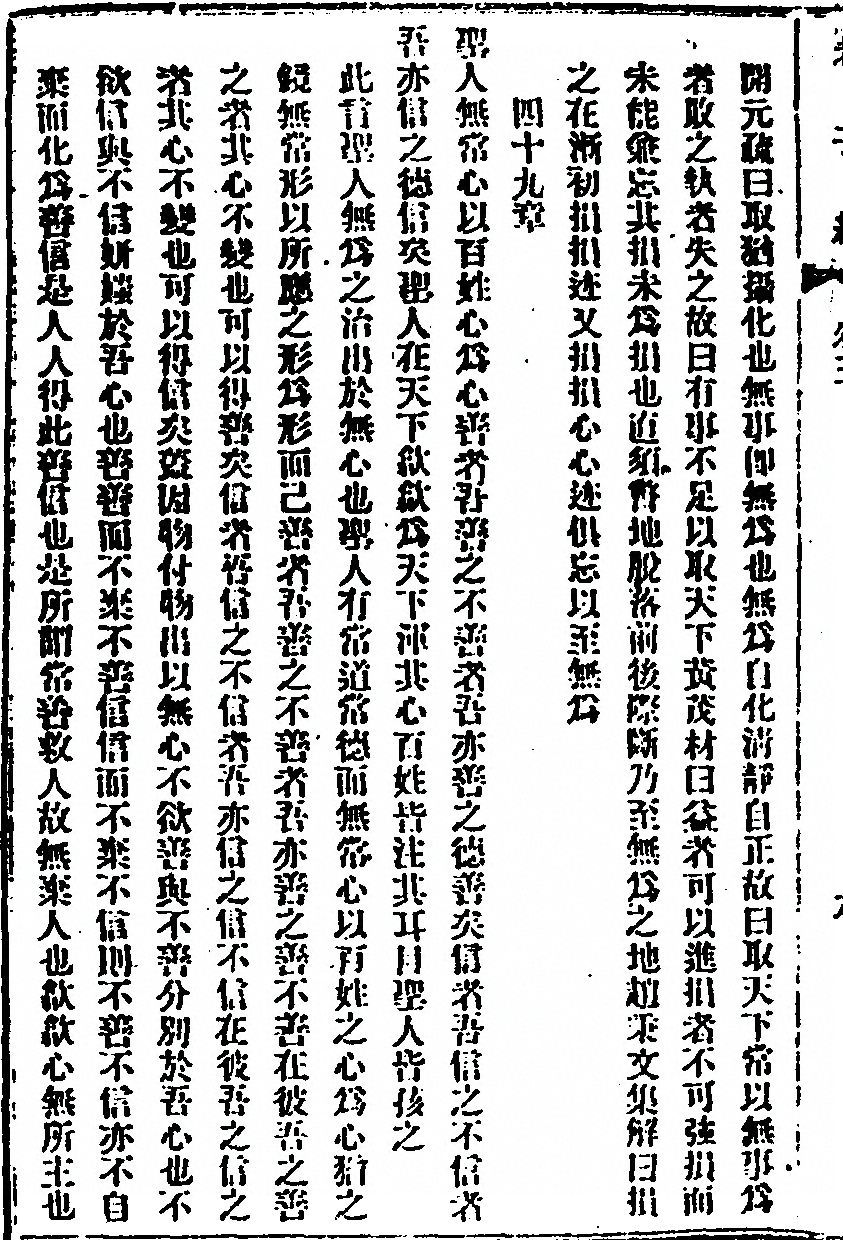 開元疏曰取猶攝化也無事即無爲也無爲自化清靜自正故曰取天下常以無事爲
者敗之執者失之故曰有事不足以取天下黃茂材曰益者可以進損者不可強損而
未能兼忘其損未爲損也直須瞥地脫落前後際斷乃至無爲之地趙秉文集解曰損
之在漸初損損迹又損損心心迹俱忘以至無爲
四十九章
聖人無常心以百姓心爲心善者吾善之不善者吾亦善之德善矣信者吾信之不信者
吾亦信之德信矣聖人在天下歙歙爲天下渾其心百姓皆注其耳目聖人皆孩之
此言聖人無爲之治出於無心也聖人有常道常德而無常心以百姓之心爲心猶之
鏡無常形以所應之形爲形而已善者吾善之不善者吾亦善之善不善在彼吾之善
之者其心不變也可以得善矣信者吾信之不信者吾亦信之信不信在彼吾之信之
者其心不變也可以得信矣蓋因物付物出以無心不欲善與不善分別於吾心也不
欲信與不信妍媸於吾心也善善而不棄不善信信而不棄不信則不善不信亦不自
棄而化爲善信是人人得此善信也是所謂常善救人故無棄人也歙歙心無所主也